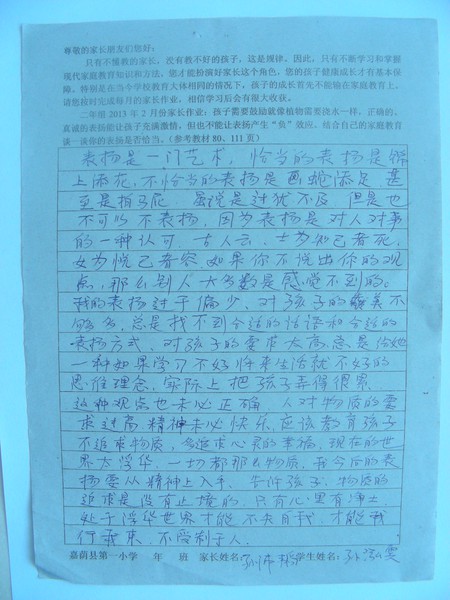 尊敬的家长朋友们您好:
只有不懂教的家长,没有教不好的孩子,这是规律。因此,只有不断学习和掌握
现代家庭教育知识和方法,您才能扮演好家长这个角色,您的孩子健康成长才有基本保
障。特别是在当今学校教育大体相同的情况下,孩子的成长首先不能输在家庭教育上,
请您按时完成每月的家长作业,相信学习后会有很大收获。
二年级 2013 年 2 月份家长作业:孩子需要鼓励就像植物需要浇水一样,正确的、
真诚的表扬能让孩子充满激情,但也不能让表扬产生“负”效应。结合自己的家庭教育
谈一谈你的表扬是否恰当。(参考教材 80、111 页)
表扬是一门艺术,恰当的表扬是锦
上添花,不恰当的表扬是画蛇添足,甚
至是拍马屁。虽说是过犹不及,但是也
不可以不表扬,因为表扬是对人对事
的一种认可,古人云,士为知己者死,
女为悦己者容,如果你不说出你的观
点,那么别人大多数是感觉不到的。
我的表扬过于偏少,对孩子的赞美不
够多,总是找不到合适的话语和合适的
表扬方式,对孩子的要求太高,总是给她
一种如果学习不好将来生活就不好的
思维理念,实际上把孩子弄得很累,
这种观点也未必正确,人对物质的要
求过高,精神未必快乐,应该教育孩子
不追求物质,多追求心灵的幸福,现在的世
界太浮华,一切都那么物质,我今后的表
扬要从精神上入手,告诉孩子,物质的
追求是没有止境的,只有心里有净土
处于浮华世界才能不失自我,才能我
行我素,不受制于人。
嘉荫县第一小学 年 班 家长姓名: 学生姓名:孙泓雯